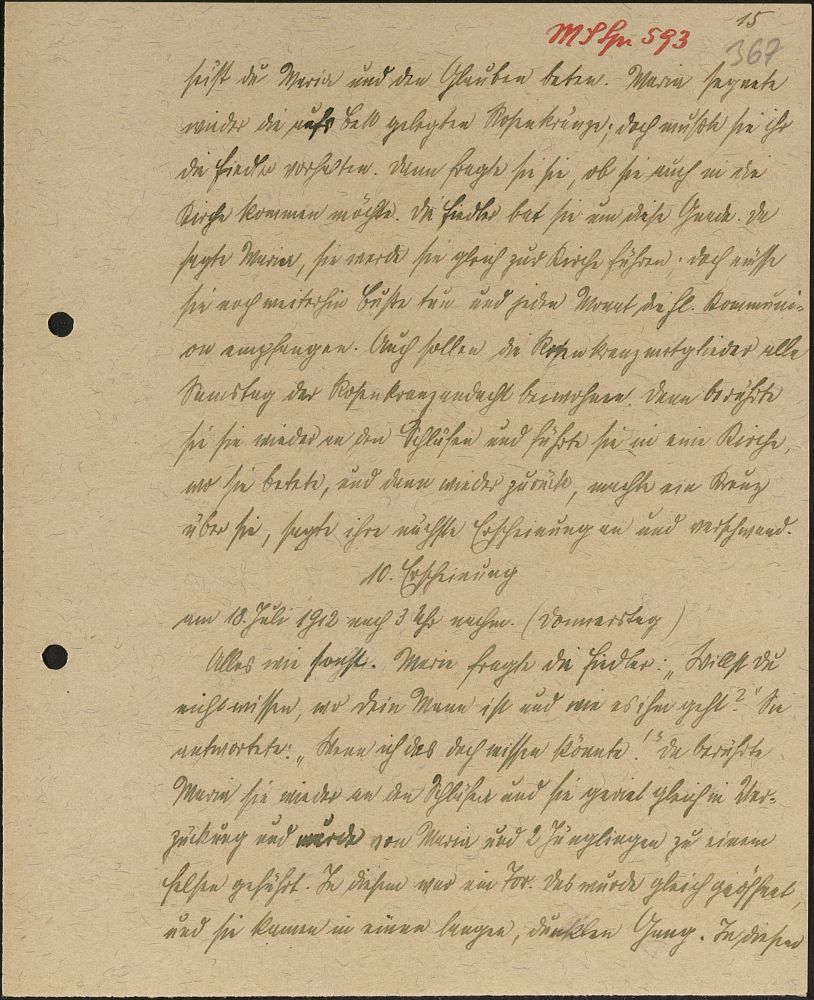 15
MS Gn 593
367
grüßt du Maria und den Glauben beten. Maria segnete
wieder die aufs Bett gelegten Rosenkränze; doch mußte sie ihr
die Fiedler vorhalten. Dann fragte sie sie, ob sie auch in die
Kirche kommen möchte. Die Fiedler bat sie um diese Gnade. Da
sagte Maria, sie werde sie gleich zur Kirche führen; doch müsse
sie noch weiterhin Buße tun und jeden Monat die hl. Kommuni-
on empfangen. Auch sollen die Rosenkranzmitglieder alle
Samstag der Rosenkranzandacht beiwohnen. Dann berührte
sie sie wieder an den Schläfen und führte sie in eine Kirche,
wo sie betete, und dann wieder zurück, machte ein Kreuz
über sie, sagte ihre nächste Erscheinung an und verschwand.
10. Erscheinung
am 18. Juli 1912 nach 3 Uhr nachm. (Donnerstag)
Alles wie sonst. Maria fragte die Fiedler: „Willst du
nicht wissen, wo dein Mann ist und wie es ihm geht?" Sie
antwortete: „Wenn ich das doch wissen könnte!" Da berührte
Maria sie wieder an den Schläfen und sie geriet gleich in Ver-
zückung und wurde von Maria und 2 Jünglingen zu einem
Felsen geführt. In diesem war ein Tor. Das wurde gleich geöffnet,
und sie kamen in einen langen, dunklen Gang. In diesem